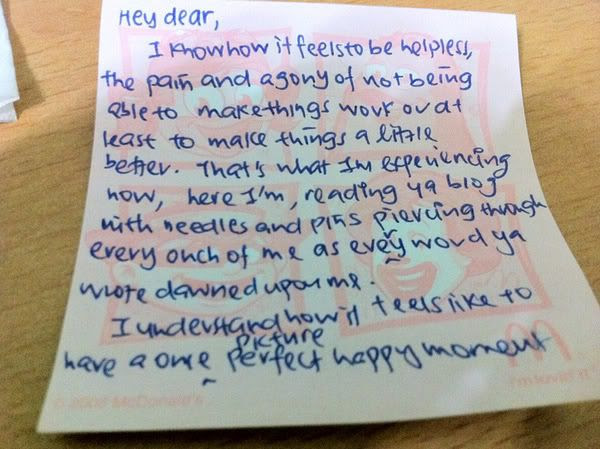 Hey dear,
I know how it feels to be helpless,
the pain and agony of not being
able to make things work or at
least to make things a little
better. That's what I'm experiencing
now, here I'm, reading ya blog
with needles and pins piercing through
every onch of me as every word ya
wrote dawned upon me.
I understand how it feels like to
have a one picture perfect happy moment
© 2008 McDonald's
i'm lovin' it